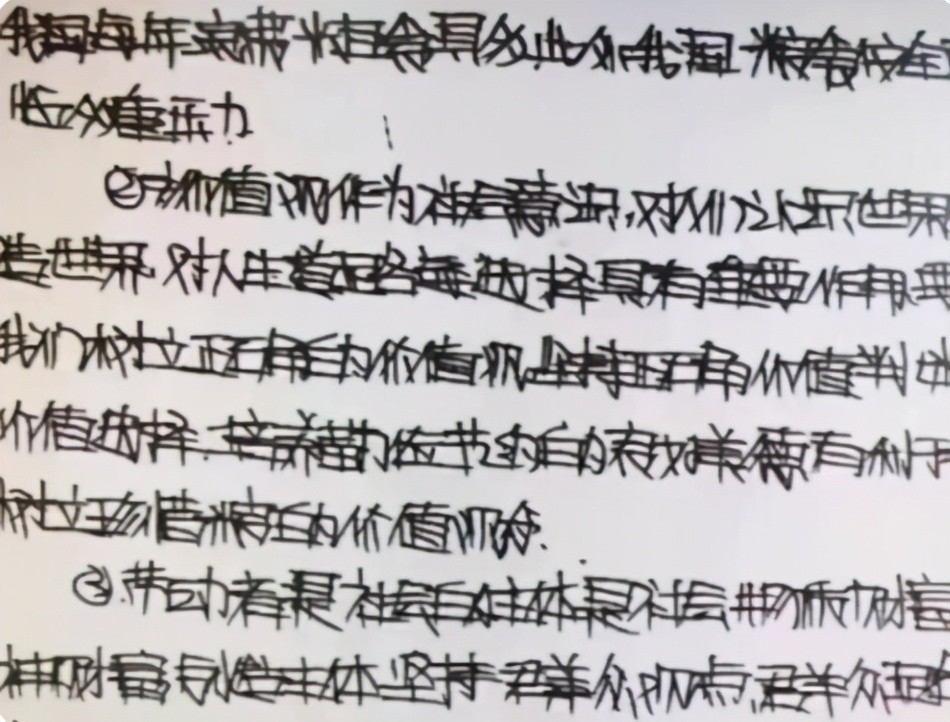 我国每年浪费粮食具多,此外我国粮食安全
临众重压力
②价值观作为社会意识,对人们认识世界
造世界,对人生道路每选择具有重要作用,要
我们树立正确的价值观,坚持正确价值判断
价值选择.培养勤俭节约的良好美德有利于
树立珍惜粮食的价值观念.
③.劳动者是社会的主体是社会物质财富
神财富创造主体坚持群众观点,群众